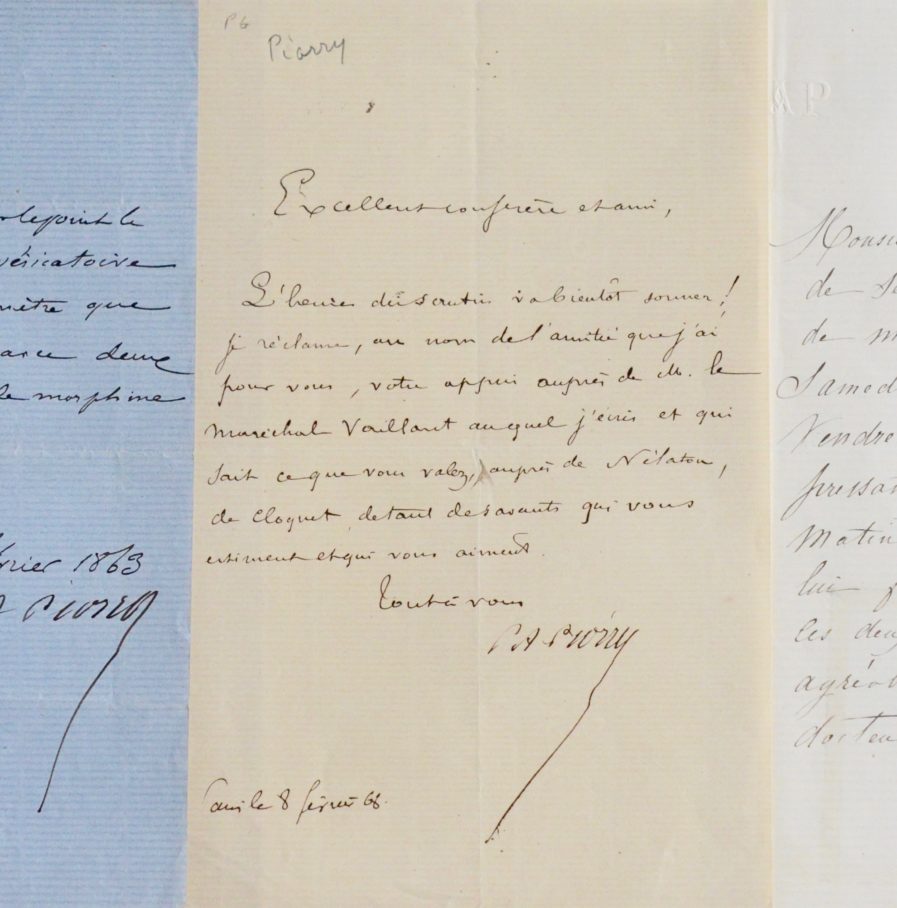 P6
Piorry
Excellent confrère et ami,
L'heure du scrutin va bientôt sonner!
je réclame, au nom de l'amitié que j'ai
pour vous, votre appui auprès de M. le
maréchal Vaillant auquel j'écris et qui
sait ce que vous valez, auprès de Nélaton,
de Cloquet, de tant de savants qui vous
estiment et qui vous aiment.
Tout à vous
P A Piorry
Paris le 8 février 68.
le point le
vésicatoire
mètre que
deux
morphine
février 1863
Piorry
AP
Monsi
de
de m
Samed
Vendre
pressan
matin
lui
ces deu
agréa
docteu